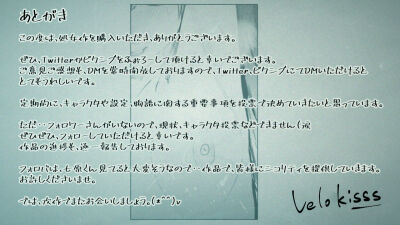 あとがき
この度は、処女作を購入いただき、ありがとうございます。
ぜひ、Twitterかピクシブをふぉろーして頂けると幸いでございます。
ご意見ご感想を、DMを常時開放しておりますので、Twitter、ピクシブにてDMいただけると
とてもうれしいです。
定期的に、キャラクタや設定、物語に関する重要事項を投票で決めていきたいと思っています。
ただ…フォロワーさんがいないので、現状、キャラクタ投票などできません(涙
ぜひぜひ、フォローしていただけると幸いです。
作品の進捗を、逐一報告しております。
フォロバは、七原くん見てると大変そうなので…作品で、皆様にニつりティを提供していきます。
お許しくださいませ。
では、次作でまたお会いしましょう。(*^^)v
Velo kisss